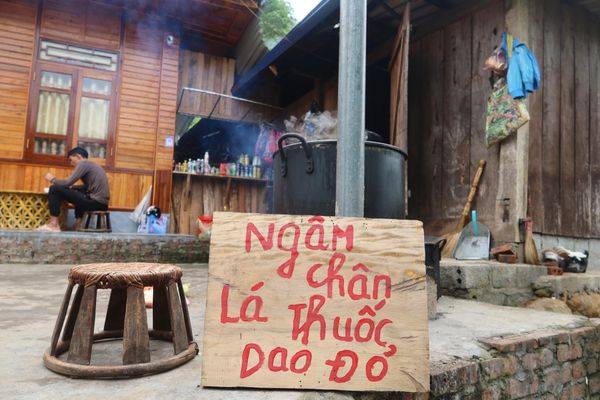 Ngâm
chân
Lá Thuốc
Dao Đỏ